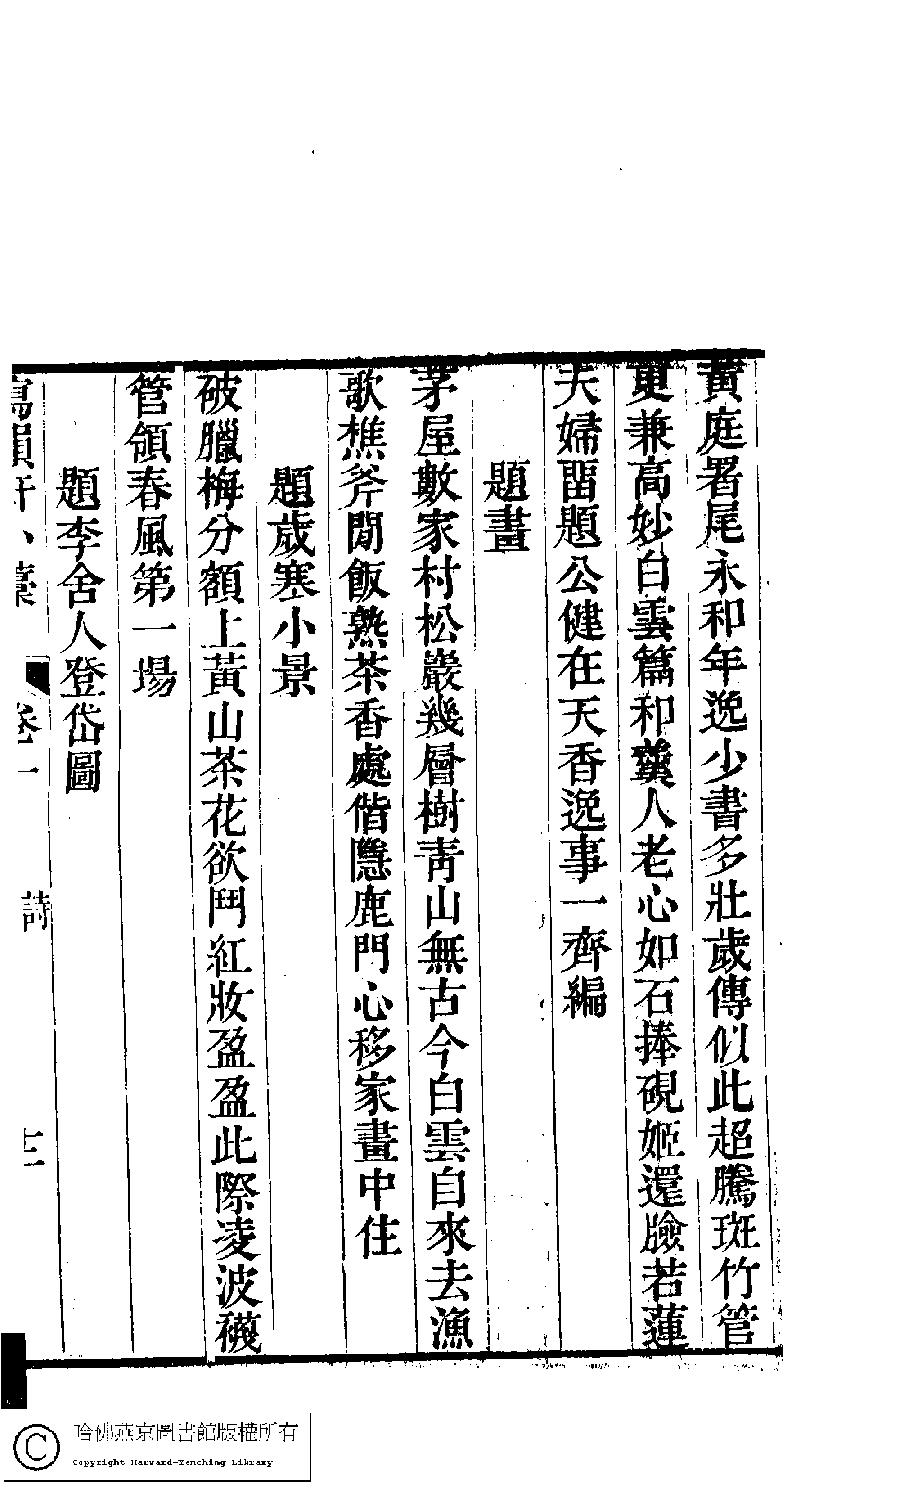 黃庭署尾永和年逸少書多壯歲傳似此超騰斑竹管
更兼高妙白雲篇和羹人老心如石捧硯姬還臉若蓮
夫婦畱題公健在天香逸事一齊編
題畫
茅屋數家村松巖幾層樹靑山無古今白雲自來去漁
歌樵斧閒飯熟茶香處偕隱鹿門心移家畫中住
題歲寒小景
破臘梅分額上黃山茶花欲鬥紅妝盈盈此際凌波襪
管領春風第一場
題李舍人登岱圖
卷一
詩
哈佛燕京圖書館版權所有
Copyright Harvard-Yenching Library